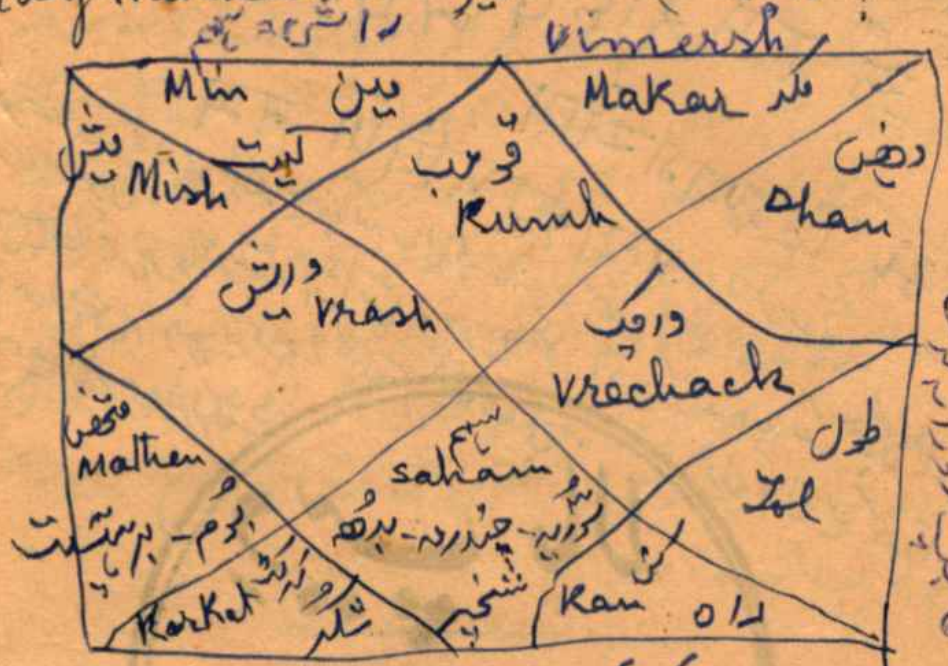 Vimersh
Min مین
Makar مکر
کیت
میش Mish
قومب
Kumh
دھن
Dhan
وریش Vrash
ورچک
Vrechack
متھن
Mathen
سہم
saham
طول
Tol
بُوم - برہسپت
سُوریہ - چندرمہ - بدھ
Karkat کرکٹ
شکر
شنیچر
Kan کن
راہ